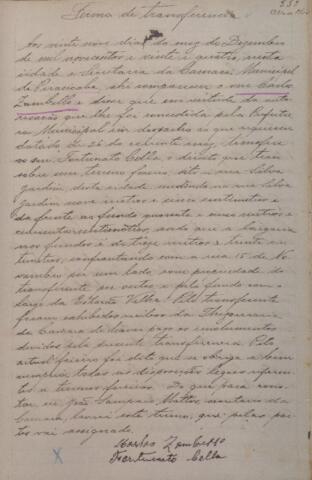 Termo de transferencia
Aos vinte nove dias do mez de Dezembro
de mil novecentos e vinte e quatro, nesta
cidade e Secretaria da Camara Municipal
de Piracicaba, ahi compareceu o snr Carlos
Zambello e disse que em virtude da auto-
risação que lhe foi concedida pela Prefeitu-
ra Municipal em despacho ao que requereu
datado de 26 do corrente mez, transfere
ao snr. Fortunato Cella, o direito que tem
sobre um terreno foreiro, sito á rua Silva
Jardim, desta cidade medindo na rua Silva
Jardim nove metros e cinco centimetros e
da frente ao fundo quarenta e nove metros e
centimetros, sendo que a largura
nos fundos é de treze metros e trinta cen-
timetros, confrontando com a rua 15 de No-
vembro por um lado, com propriedade do
transferente por outro e pelo fundo com o
largo da Estação Velha. Pelo transferente
foram exhibidos recibos da Thesouraria
da Camara de haver pago os emolumentos
devidos pela presente transferencia. Pelo
actual foreiro foi dito que se obriga a bem
cumprir todas as disposições legaes referen-
tes a terrenos foreiros. Do que para cons-
tar, eu, João Sampaio Mattos, secretario da
Camara, lavrei este termo, que pelas par-
tes vai assignado.
Carlos Zambello
Fortunato Cella